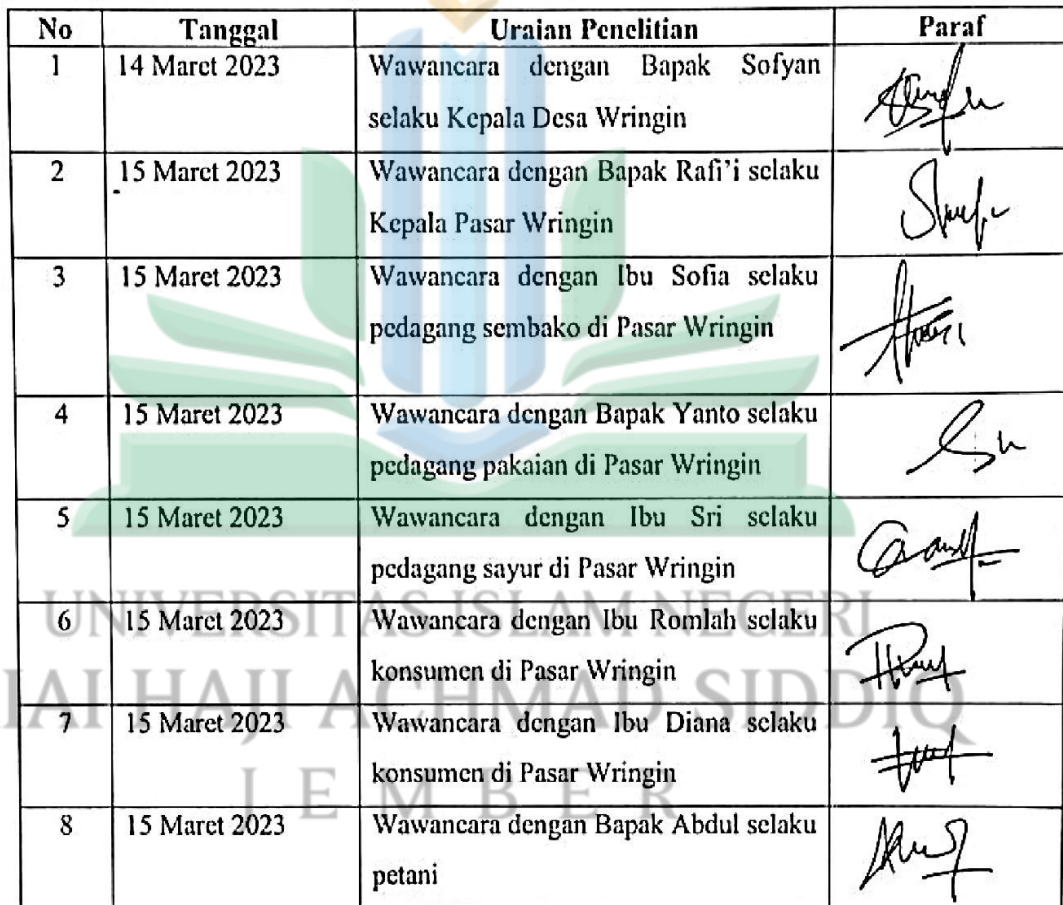 No Tanggal Uraian Penelitian Paraf
1 14 Maret 2023 Wawancara dengan Bapak Sofyan
selaku Kepala Desa Wringin
2 15 Maret 2023 Wawancara dengan Bapak Rafi'i selaku
Kepala Pasar Wringin
3 15 Maret 2023 Wawancara dengan Ibu Sofia selaku
pedagang sembako di Pasar Wringin
4 15 Maret 2023 Wawancara dengan Bapak Yanto selaku
pedagang pakaian di Pasar Wringin
5 15 Maret 2023 Wawancara dengan Ibu Sri selaku
pedagang sayur di Pasar Wringin
UNIVERSITAS ISLAM NEGERI
6 15 Maret 2023 Wawancara dengan Ibu Romlah selaku
konsumen di Pasar Wringin
IAI HAJI ACHMAD SIDDIQ
7 15 Maret 2023 Wawancara dengan Ibu Diana selaku
konsumen di Pasar Wringin
JEMBER
8 15 Maret 2023 Wawancara dengan Bapak Abdul selaku
petani